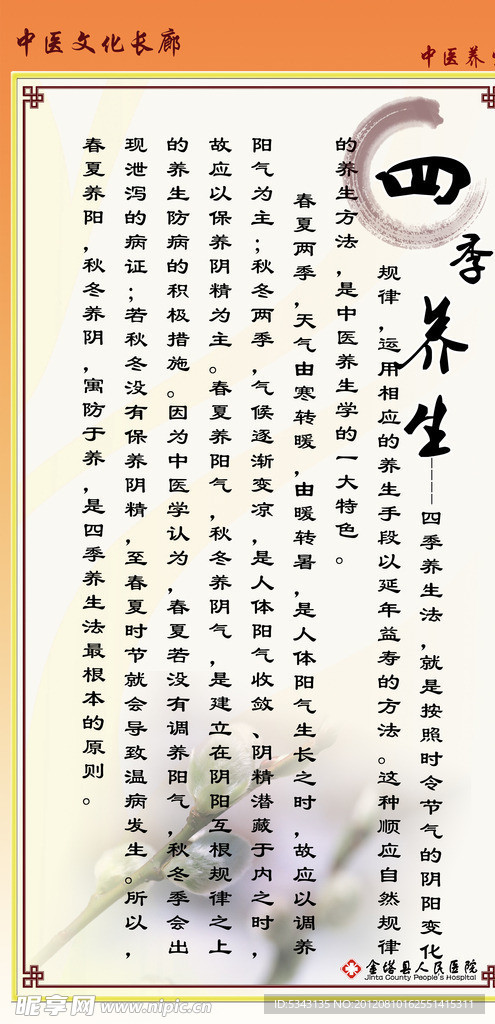 中医文化长廊
中医养生
四季养生
———四季养生法，就是按照时令节气的阴阳变化
规律，运用相应的养生手段以延年益寿的方法。这种顺应自然规律
的养生方法，是中医养生学的一大特色。
春夏两季，天气由寒转暖，由暖转暑，是人体阳气生长之时，故应以调养
阳气为主；秋冬两季，气候逐渐变凉，是人体阳气收敛、阴精潜藏于内之时，
故应以保养阴精为主。春夏养阳气，秋冬养阴气，是建立在阴阳互根规律之上
的养生防病的积极措施。因为中医学认为，春夏若没有调养阳气，秋冬季会出
现泄泻的病证；若秋冬没有保养阴精，至春夏时节就会导致温病发生。所以，
春夏养阳，秋冬养阴，寓防于养，是四季养生法最根本的原则。
金塔县人民医院
Jinta County People's Hospital
昵享网 www.nipic.cn
ID:5343135 NO:20120810162551415311